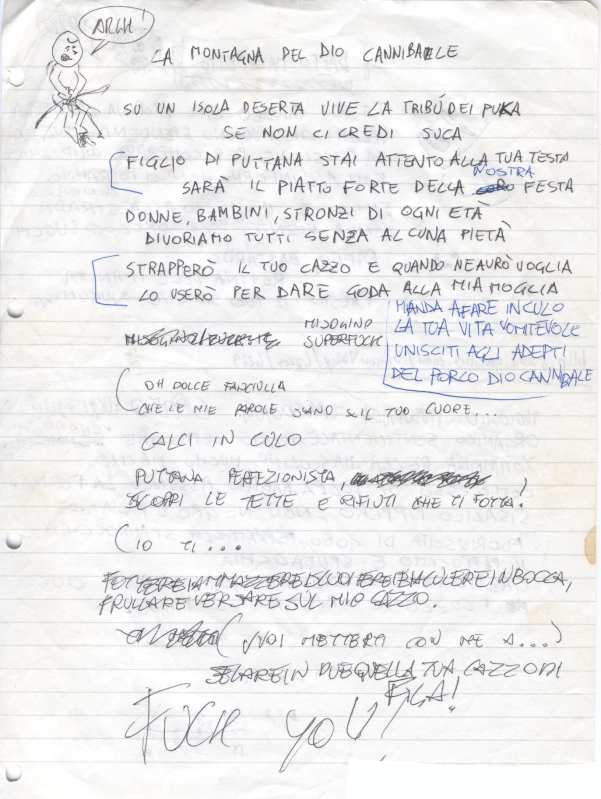 ARGH!
LA MONTAGNA DEL DIO CANNIBALE
SU UN ISOLA DESERTA VIVE LA TRIBÚ DEI PUKA
SE NON CI CREDI SUCA
FIGLIO DI PUTTANA STAI ATTENTO ALLA TUA TESTA
SARÀ IL PIATTO FORTE DELLA NOSTRA FESTA
DONNE, BAMBINI, STRONZI DI OGNI ETÀ
DIVORIAMO TUTTI SENZA ALCUNA PIETÀ
STRAPPERÒ IL TUO CAZZO E QUANDO NE AVRÒ VOGLIA
LO USERÒ PER DARE GODA ALLA MIA MOGLIA
MANDA AFARE INCULO
LA TUA VITA VOMITEVOLE
UNISCITI AGLI ADEPTI
DEL PORCO DIO CANNIBALE
MISOGINO
SUPERFUCK
(OH DOLCE FANCIULLA
CHE LE MIE PAROLE SIANO SUL TUO CUORE...
CALCI IN CULO
PUTTANA PERFEZIONISTA, !
SCOPRI LE TETTE E RIFIUTI CHE TI FOTTA!
(IO TI...
IN BOCCA,
FRULLARE VERSARE SUL MIO CAZZO.
(VUOI METTERTI CON ME A...)
SEGARE IN DUE QUELLA TUA CAZZO DI
FICA!
FUCK YOU!